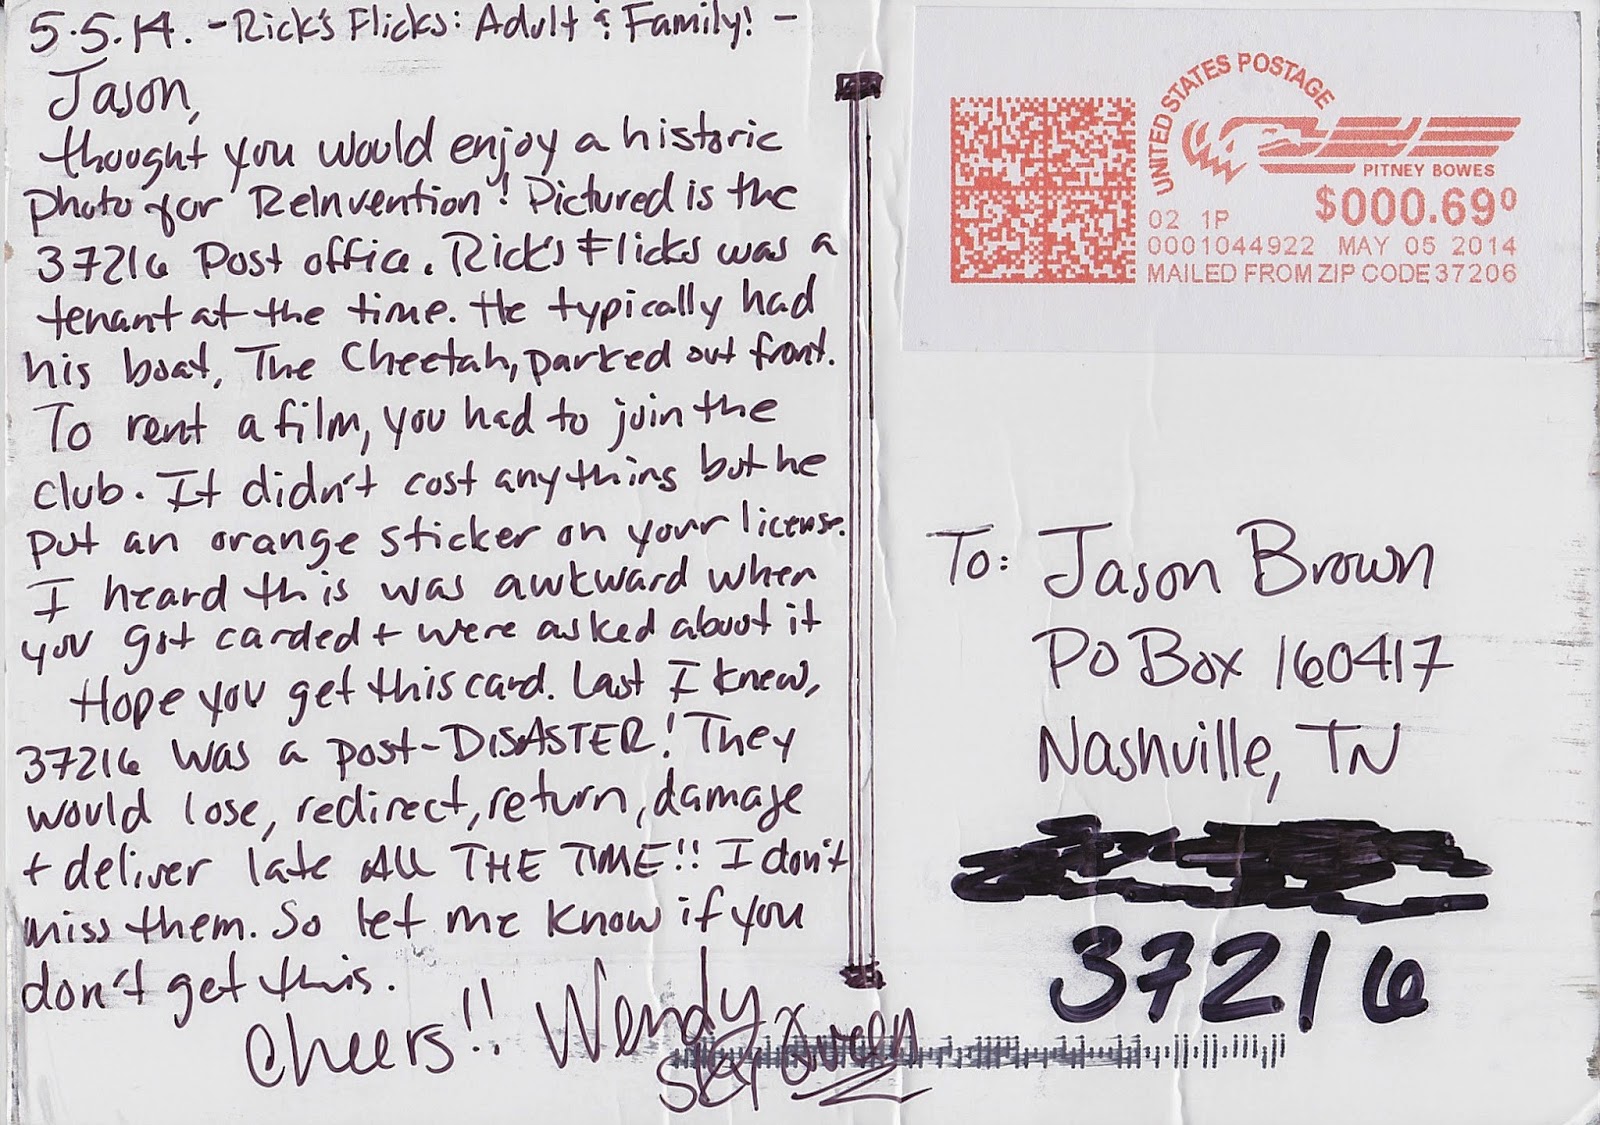 5.5.14. -Rick's Flicks: Adult & Family! -
Jason,
thought you would enjoy a historic
photo for ReInvention! Pictured is the
37216 Post office. Rick's Flicks was a
tenant at the time. He typically had
his boat, The Cheetah, parked out front.
To rent a film, you had to join the
club. It didn't cost anything but he
put an orange sticker on your license.
I heard this was awkward when
you got carded + were asked about it
Hope you get this card. Last I knew,
37216 was a post-DISASTER! They
would lose, redirect, return, damage
+ deliver late ALL THE TIME!! I don't
miss them. So let me know if you
don't get this.
Cheers!! Wendy
UNITED STATES POSTAGE
PITNEY BOWES
$000.69⁰
02 1P
0001044922 MAY 05 2014
MAILED FROM ZIP CODE 37206
To: Jason Brown
PO Box 160417
Nashville, TN
37216